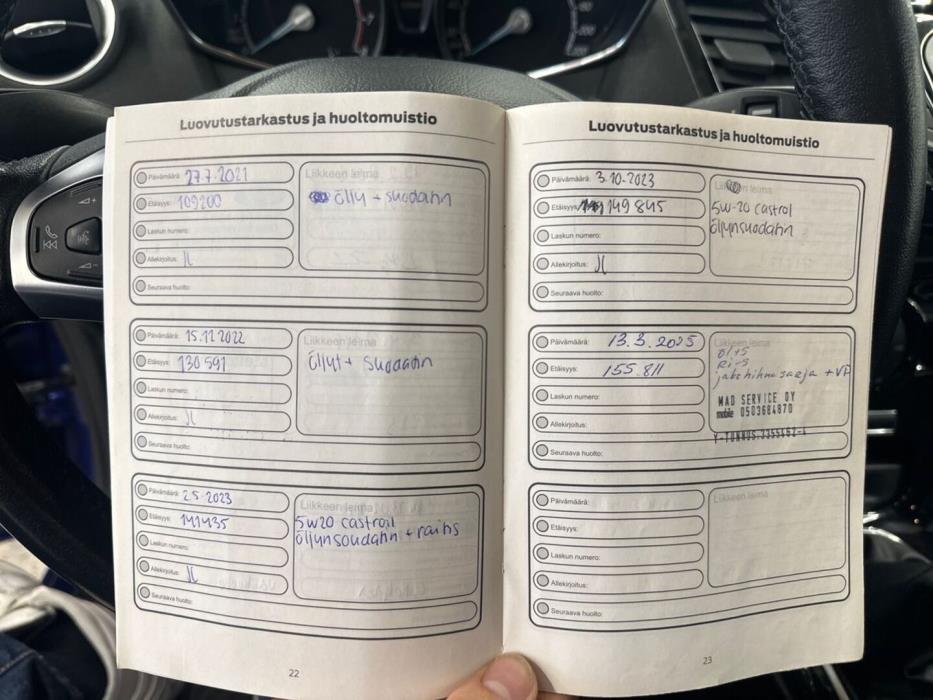 Luovutustarkastus ja huoltomuistio
Päivämäärä: 27.7.2021
Etäisyys: 109200
Laskun numero:
Allekirjoitus: JL
Seuraava huolto:
Liikkeen leima
öljy + suodatin
Päivämäärä: 15.12 2022
Etäisyys: 130 591
Laskun numero:
Allekirjoitus: JL
Seuraava huolto:
Liikkeen leima
öljyt + suodatin
Päivämäärä: 2.5.2023
Etäisyys: 141435
Laskun numero:
Allekirjoitus: JL
Seuraava huolto:
Liikkeen leima
5w20 castroil
öljynsoudahn + raihs
22
Luovutustarkastus ja huoltomuistio
Päivämäärä: 3.10-2023
Etäisyys: 149 845
Laskun numero:
Allekirjoitus: JL
Seuraava huolto:
Liikkeen leima
5w-20 castrol
öljynsuodatin
Päivämäärä: 13.3.2025
Etäisyys: 155.811
Laskun numero:
Allekirjoitus:
Seuraava huolto:
Liikkeen leima
Öl+S
Ri-S
jakohihnasarja + VP
MAD SERVICE OY
mobile 0503684870
Y-TUNNUS:3355452-1
Päivämäärä:
Etäisyys:
Laskun numero:
Allekirjoitus:
Seuraava huolto:
Liikkeen leima
23